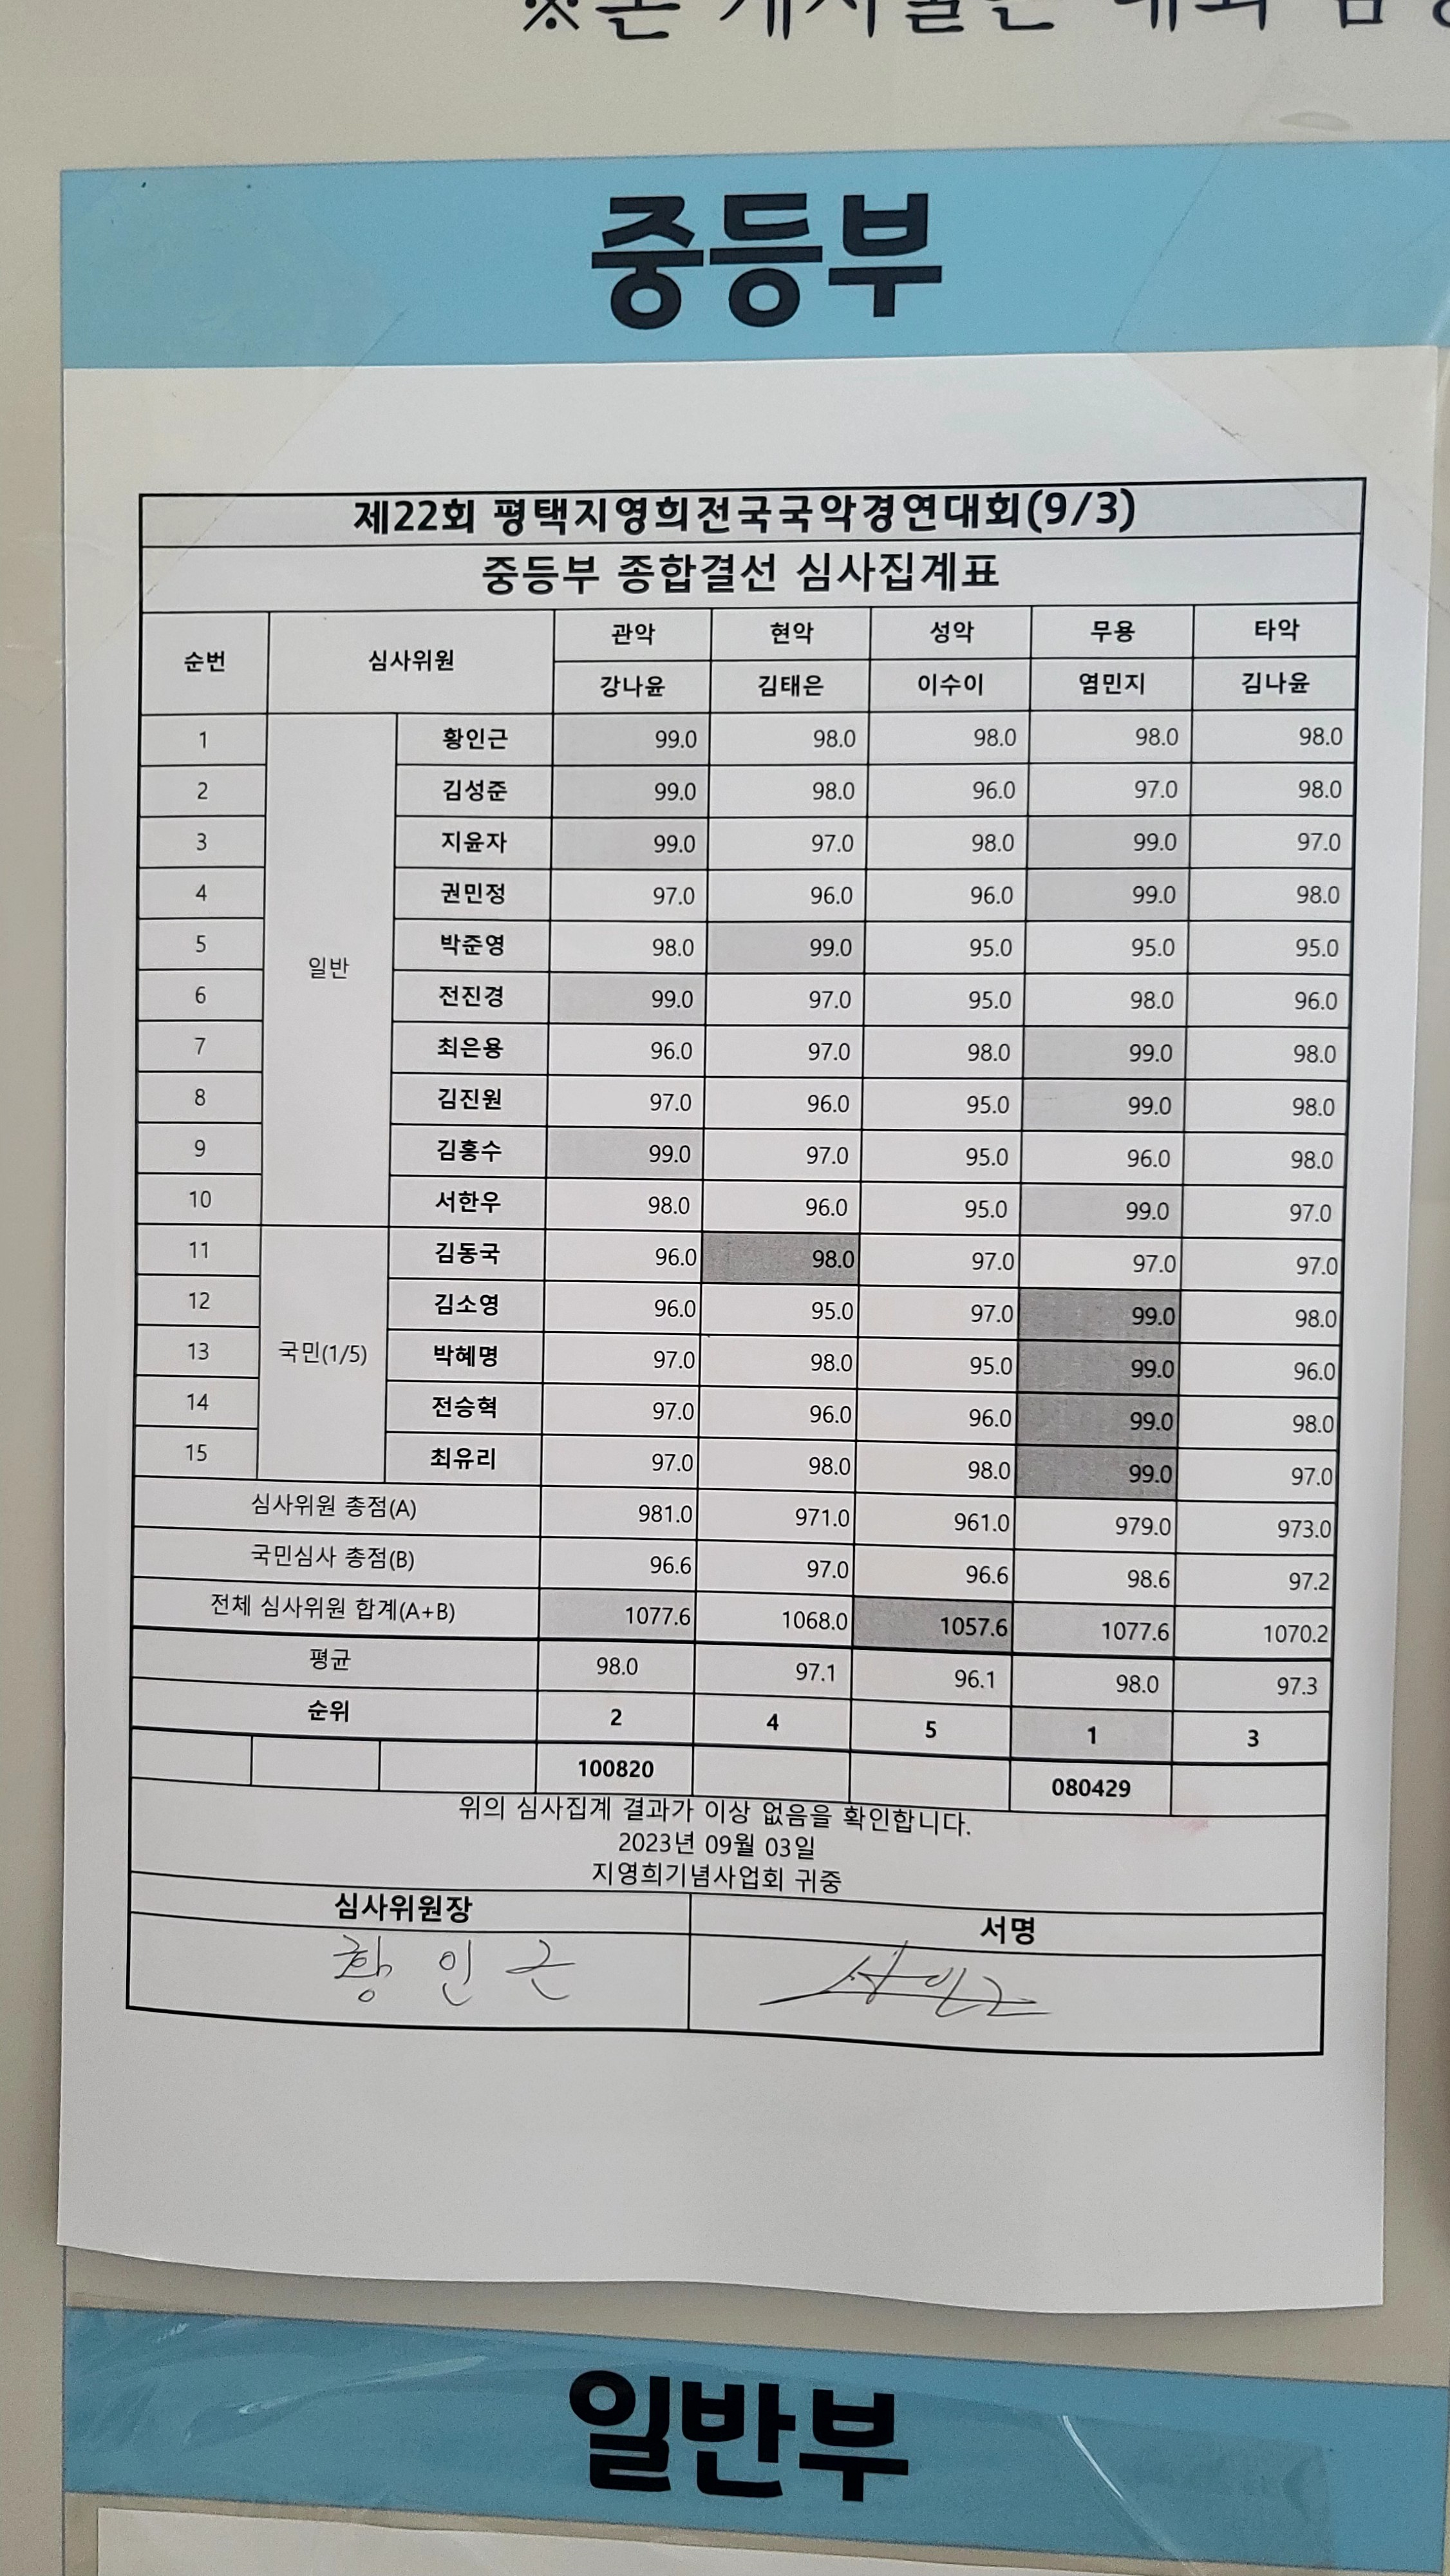 중등부
제22회 평택지영희전국국악경연대회(9/3)
중등부 종합결선 심사집계표
순번 심사위원 관악 현악 성악 무용 타악
강나윤 김태은 이수이 염민지 김나윤
1 황인근 99.0 98.0 98.0 98.0 98.0
2 김성준 99.0 98.0 96.0 97.0 98.0
3 지윤자 99.0 97.0 98.0 99.0 97.0
4 권민정 97.0 96.0 96.0 99.0 98.0
5 일반 박준영 98.0 99.0 95.0 95.0 95.0
6 전진경 99.0 97.0 95.0 98.0 96.0
7 최은용 96.0 97.0 98.0 99.0 98.0
8 김진원 97.0 96.0 95.0 99.0 98.0
9 김홍수 99.0 97.0 95.0 96.0 98.0
10 서한우 98.0 96.0 95.0 99.0 97.0
11 김동국 96.0 98.0 97.0 97.0 97.0
12 김소영 96.0 95.0 97.0 99.0 98.0
13 국민(1/5) 박혜명 97.0 98.0 95.0 99.0 96.0
14 전승혁 97.0 96.0 96.0 99.0 98.0
15 최유리 97.0 98.0 98.0 99.0 97.0
심사위원 총점(A) 981.0 971.0 961.0 979.0 973.0
국민심사 총점(B) 96.6 97.0 96.6 98.6 97.2
전체 심사위원 합계(A+B) 1077.6 1068.0 1057.6 1077.6 1070.2
평균 98.0 97.1 96.1 98.0 97.3
순위 2 4 5 1 3
100820 080429
위의 심사집계 결과가 이상 없음을 확인합니다.
2023년 09월 03일
지영희기념사업회 귀중
심사위원장 서명
황 인 근
일반부